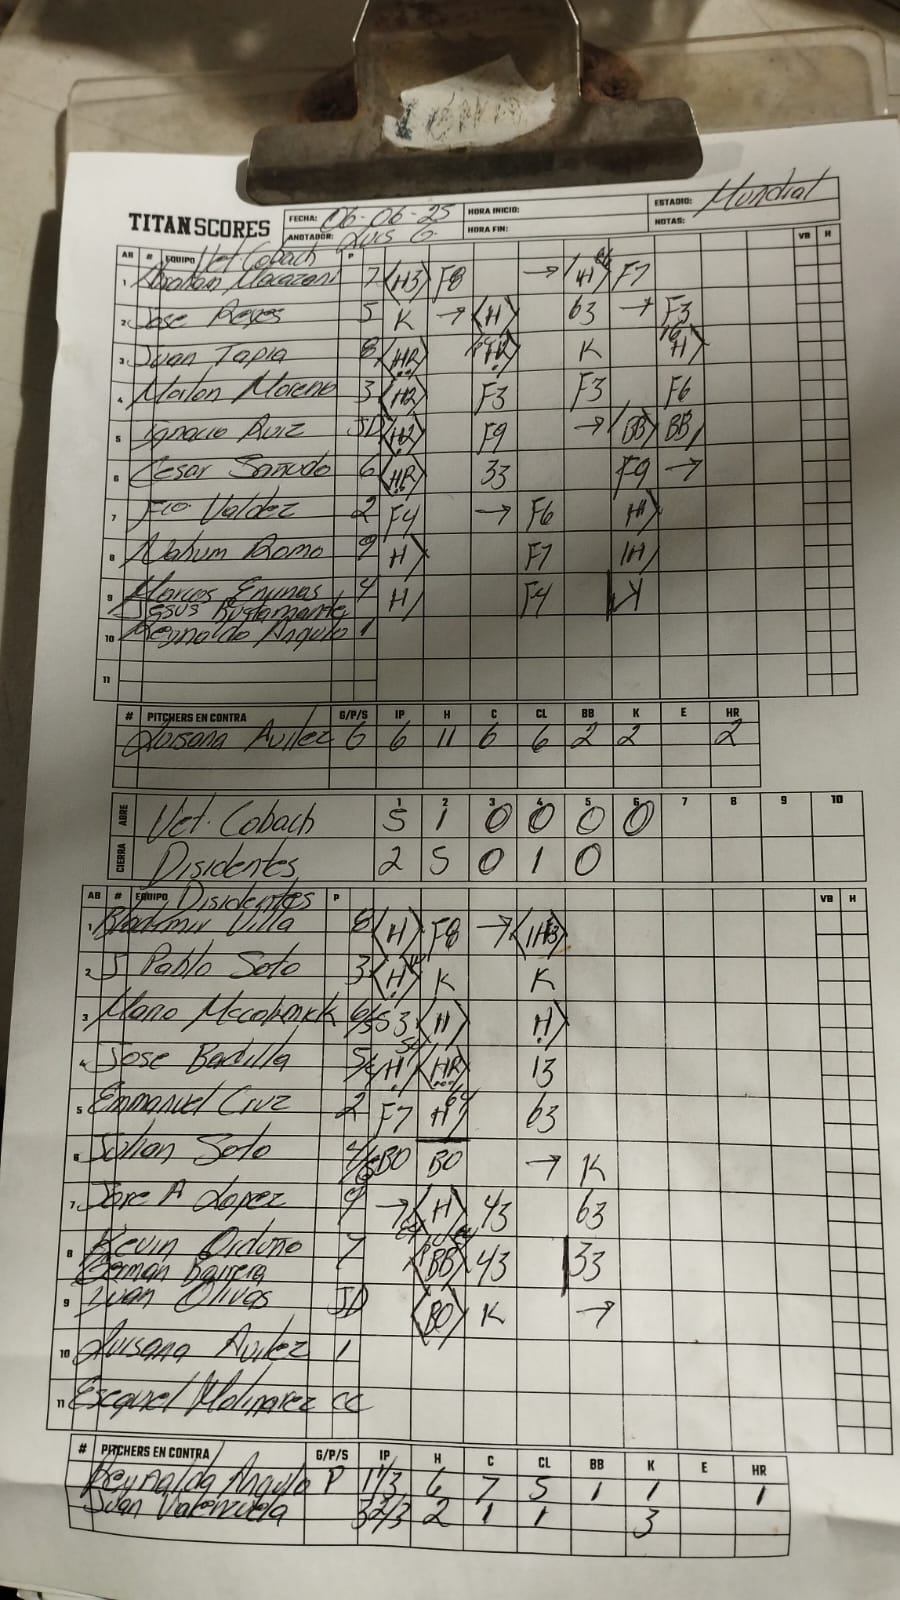 TITAN SCORES
FECHA: 06-06-25 HORA INICIO: ESTADIO: Mundial
ANOTADOR: Luis G. HORA FIN: NOTAS:
AB # EQUIPO Vet. Cobach P VB H
1 Abraham 7 H3 F8 → H F7
2 Jose Reyes 5 K → H 63 → F3
3 Juan Tapia 8 HR HR K H
4 Marlon Moreno 3 H2 F3 F3 F6
5 Ignacio Ruiz JD H2 F9 → BB BB
6 Cesar Sañudo 6 HR 33 F9 →
7 Fco Valdez 2 F4 → F6 H
8 Nahum Romo 9 H F7 IH
9 Marcos 4 H F4 K
Jesus Bustamante
10 Reynaldo Angulo 1
11
# PITCHERS EN CONTRA G/P/S IP H C CL BB K E HR
Luisana Avilez G 6 11 6 6 2 2 2
1 2 3 4 5 6 7 8 9 10
ABRE Vet. Cobach 5 1 0 0 0 0
CIERRA Disidentes 2 5 0 1 0
AB # EQUIPO Disidentes P VB H
1 Bladimir Villa 8 H F8 → IH3
2 J Pablo Soto 3 H K K
3 Mario 6/5 53 H H
4 Jose Badilla 5/4 H HR 13
5 Emmanuel Cruz 2 F7 H 63
6 Julian Soto 4/6 BO BO → K
7 Jose A Lopez 9 → H 43 63
8 Kevin Orduño 7 BB 43 33
German Barrera
9 Juan Olivas JD BO K →
10 Luisana Avilez 1
11 Esequiel Molinarez CC
# PITCHERS EN CONTRA G/P/S IP H C CL BB K E HR
Reynaldo Angulo P 1 1/3 6 7 5 1 1 1
Juan Valenzuela 3 2/3 2 1 1 3